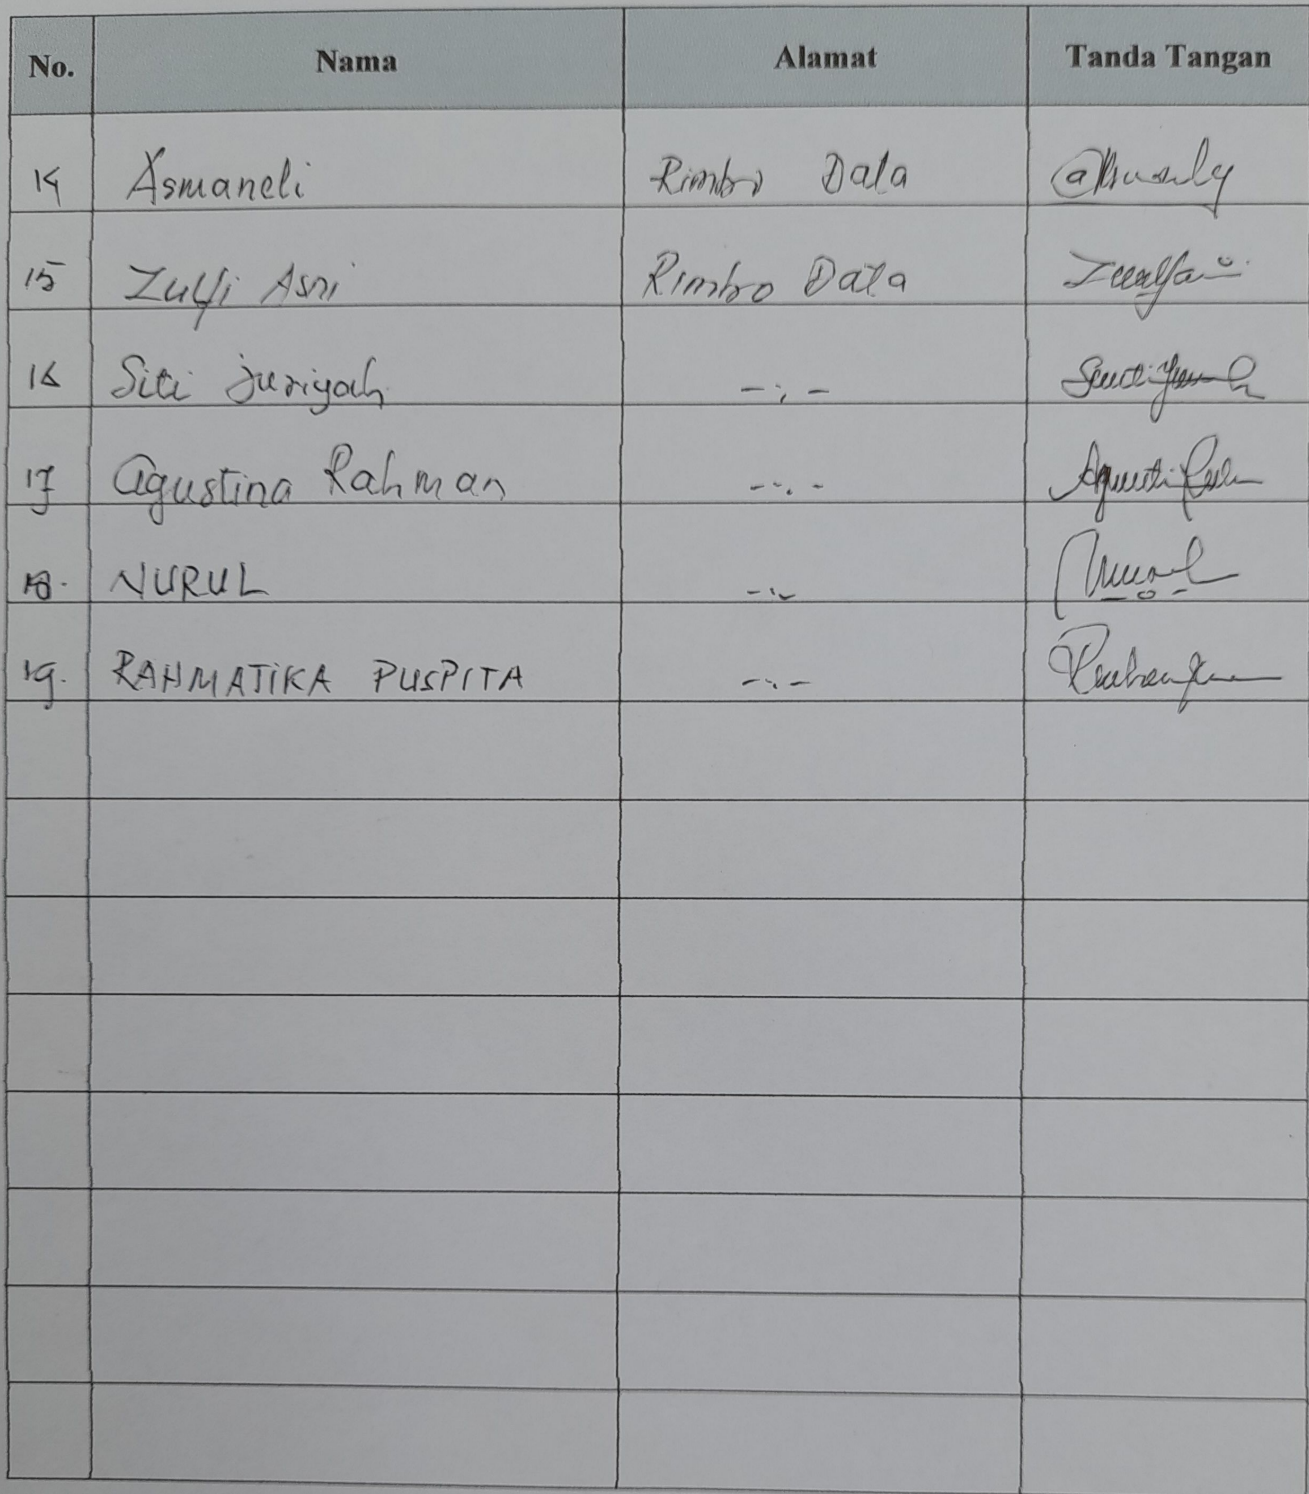 No. Nama Alamat Tanda Tangan
14 Asmaneli Rimbo Data
15 Zulfi Asni Rimbo Data
16 Siti juriyah -,-
17 Agustina Rahman -..-
18. NURUL -..-
19. RAHMATIKA PUSPITA -..-